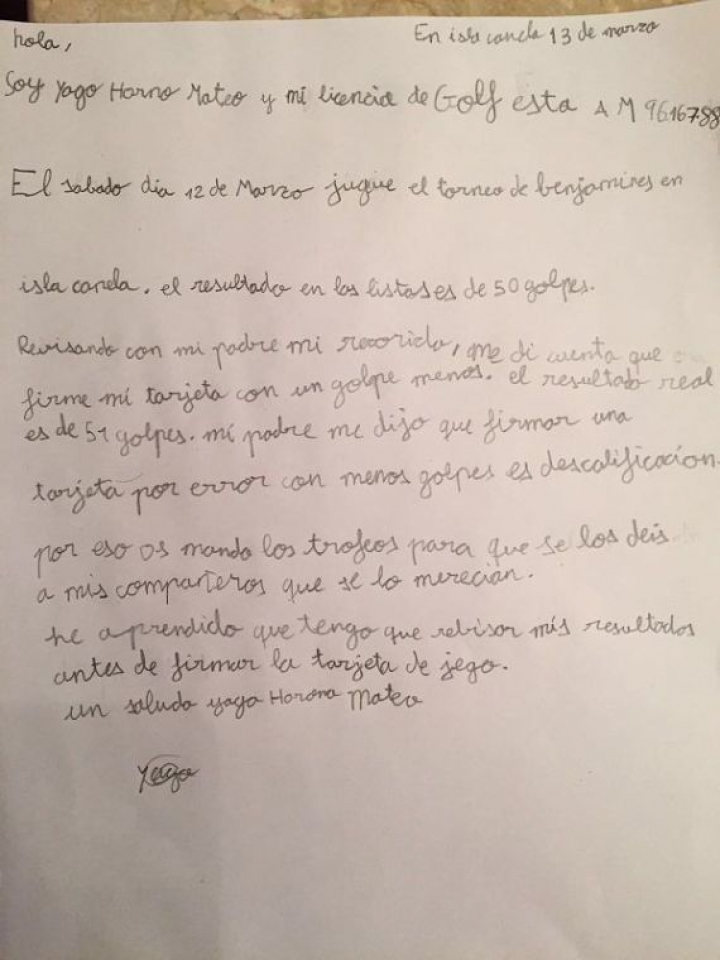 En isla canela 13 de marzo
hola,
Soy Yago Horno Mateo y mi licencia de Golf esta AM 9616788
El sabado dia 12 de Marzo jugue el torneo de benjamines en
isla canela. el resultado en las listas es de 50 golpes.
Revisando con mi padre mi recorido, me di cuenta que
firme mi tarjeta con un golpe menos. el resultado real
es de 51 golpes. mi padre me dijo que firmar una
tarjeta por error con menos golpes es descalificacion.
por eso os mando los trofeos para que se los deis
a mis compañeros que se lo merecian.
he aprendido que tengo que rebisar mis resultados
antes de firmar la tarjeta de jego.
un saludo yago Mateo
Yago